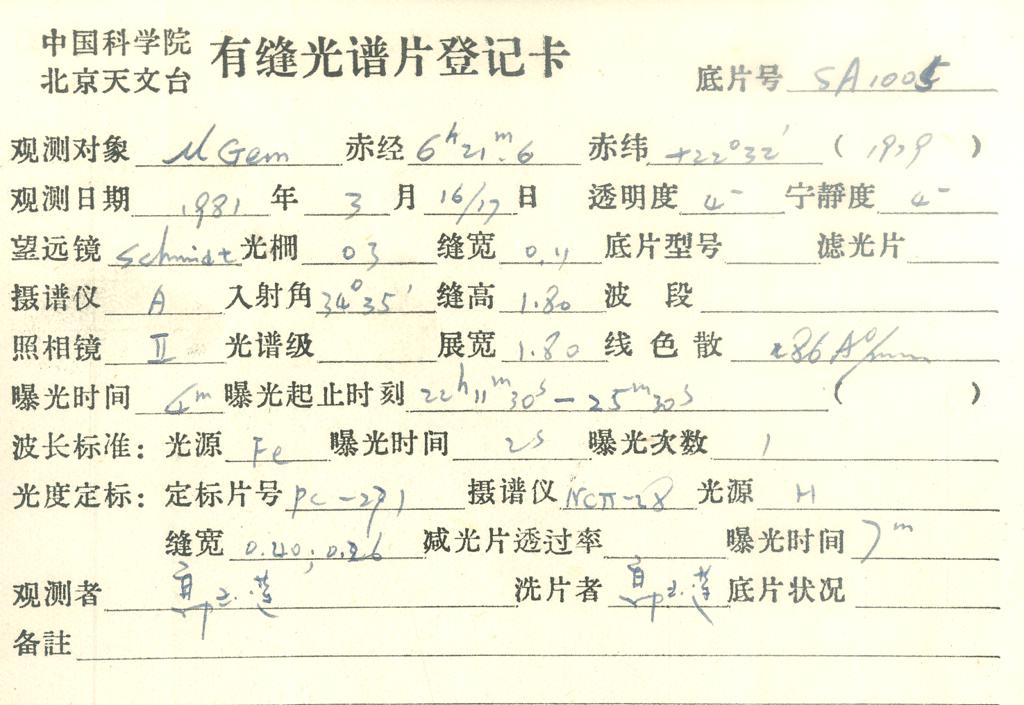 中国科学院
北京天文台
有缝光谱片登记卡
底片号 SA1005
观测对象 μ Gem 赤经 6h21m.6 赤纬 +22°32′ ( 1979 )
观测日期 1981 年 3 月 16/17 日 透明度 4- 宁静度 4-
望远镜 Schmidt 光栅 03 缝宽 底片型号 滤光片
摄谱仪 A 入射角 34°35′ 缝高 1.80 波段
照相镜 II 光谱级 展宽 1.80 线色散 86 A°/mm
曝光时间 4m 曝光起止时刻 22h11m30s — 25m30s ( )
波长标准: 光源 Fe 曝光时间 2s 曝光次数 1
光度定标: 定标片号 PC-271 摄谱仪 光源 H
缝宽 0.40; 0.26 减光片透过率 曝光时间 7m
观测者 洗片者 底片状况
备註